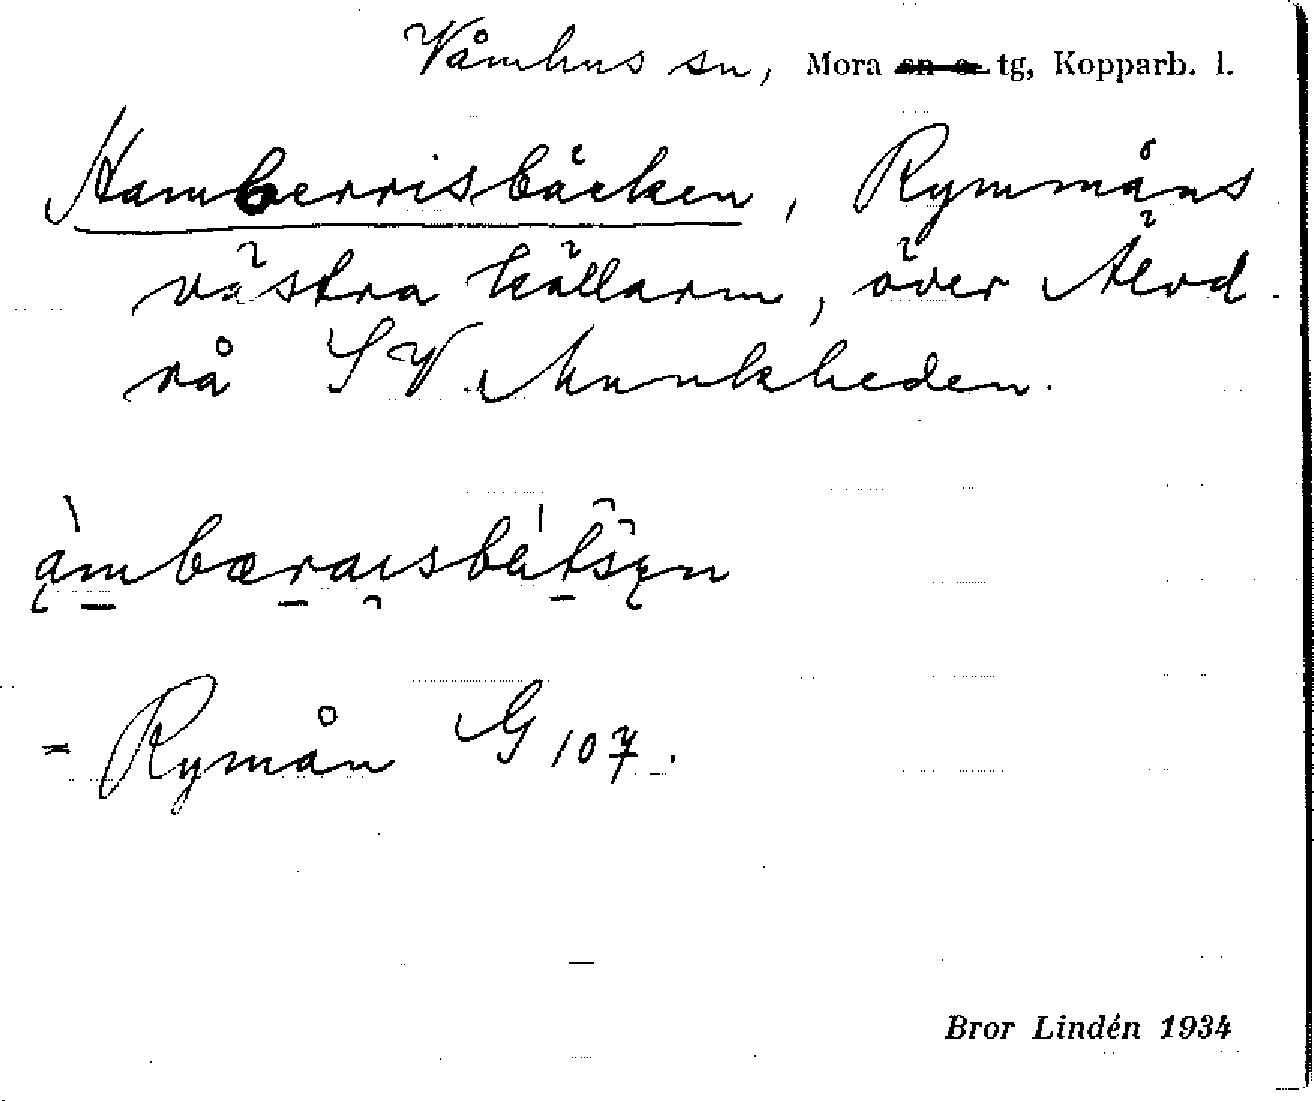 Våmhus sn, Mora sn o. tg, Kopparb. l.
Hamberrisbäcken, Rymmåns
västra källarm, över Älvd.
rå SV Munkheden.
= Rymån G 107.
Bror Lindén 1934